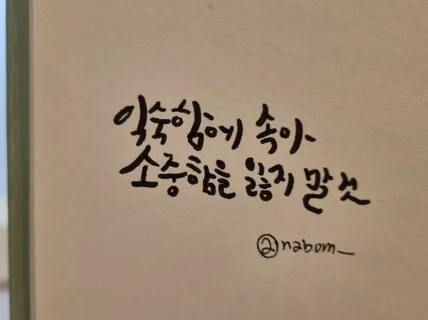 익숙함에 속아
소중함을 잃지 말 것
@nabom_